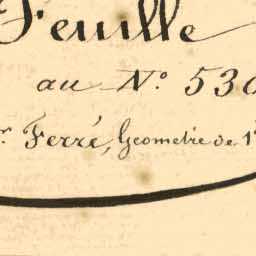 Feuille
au N.º 530
r. Ferré, Geometre de 1